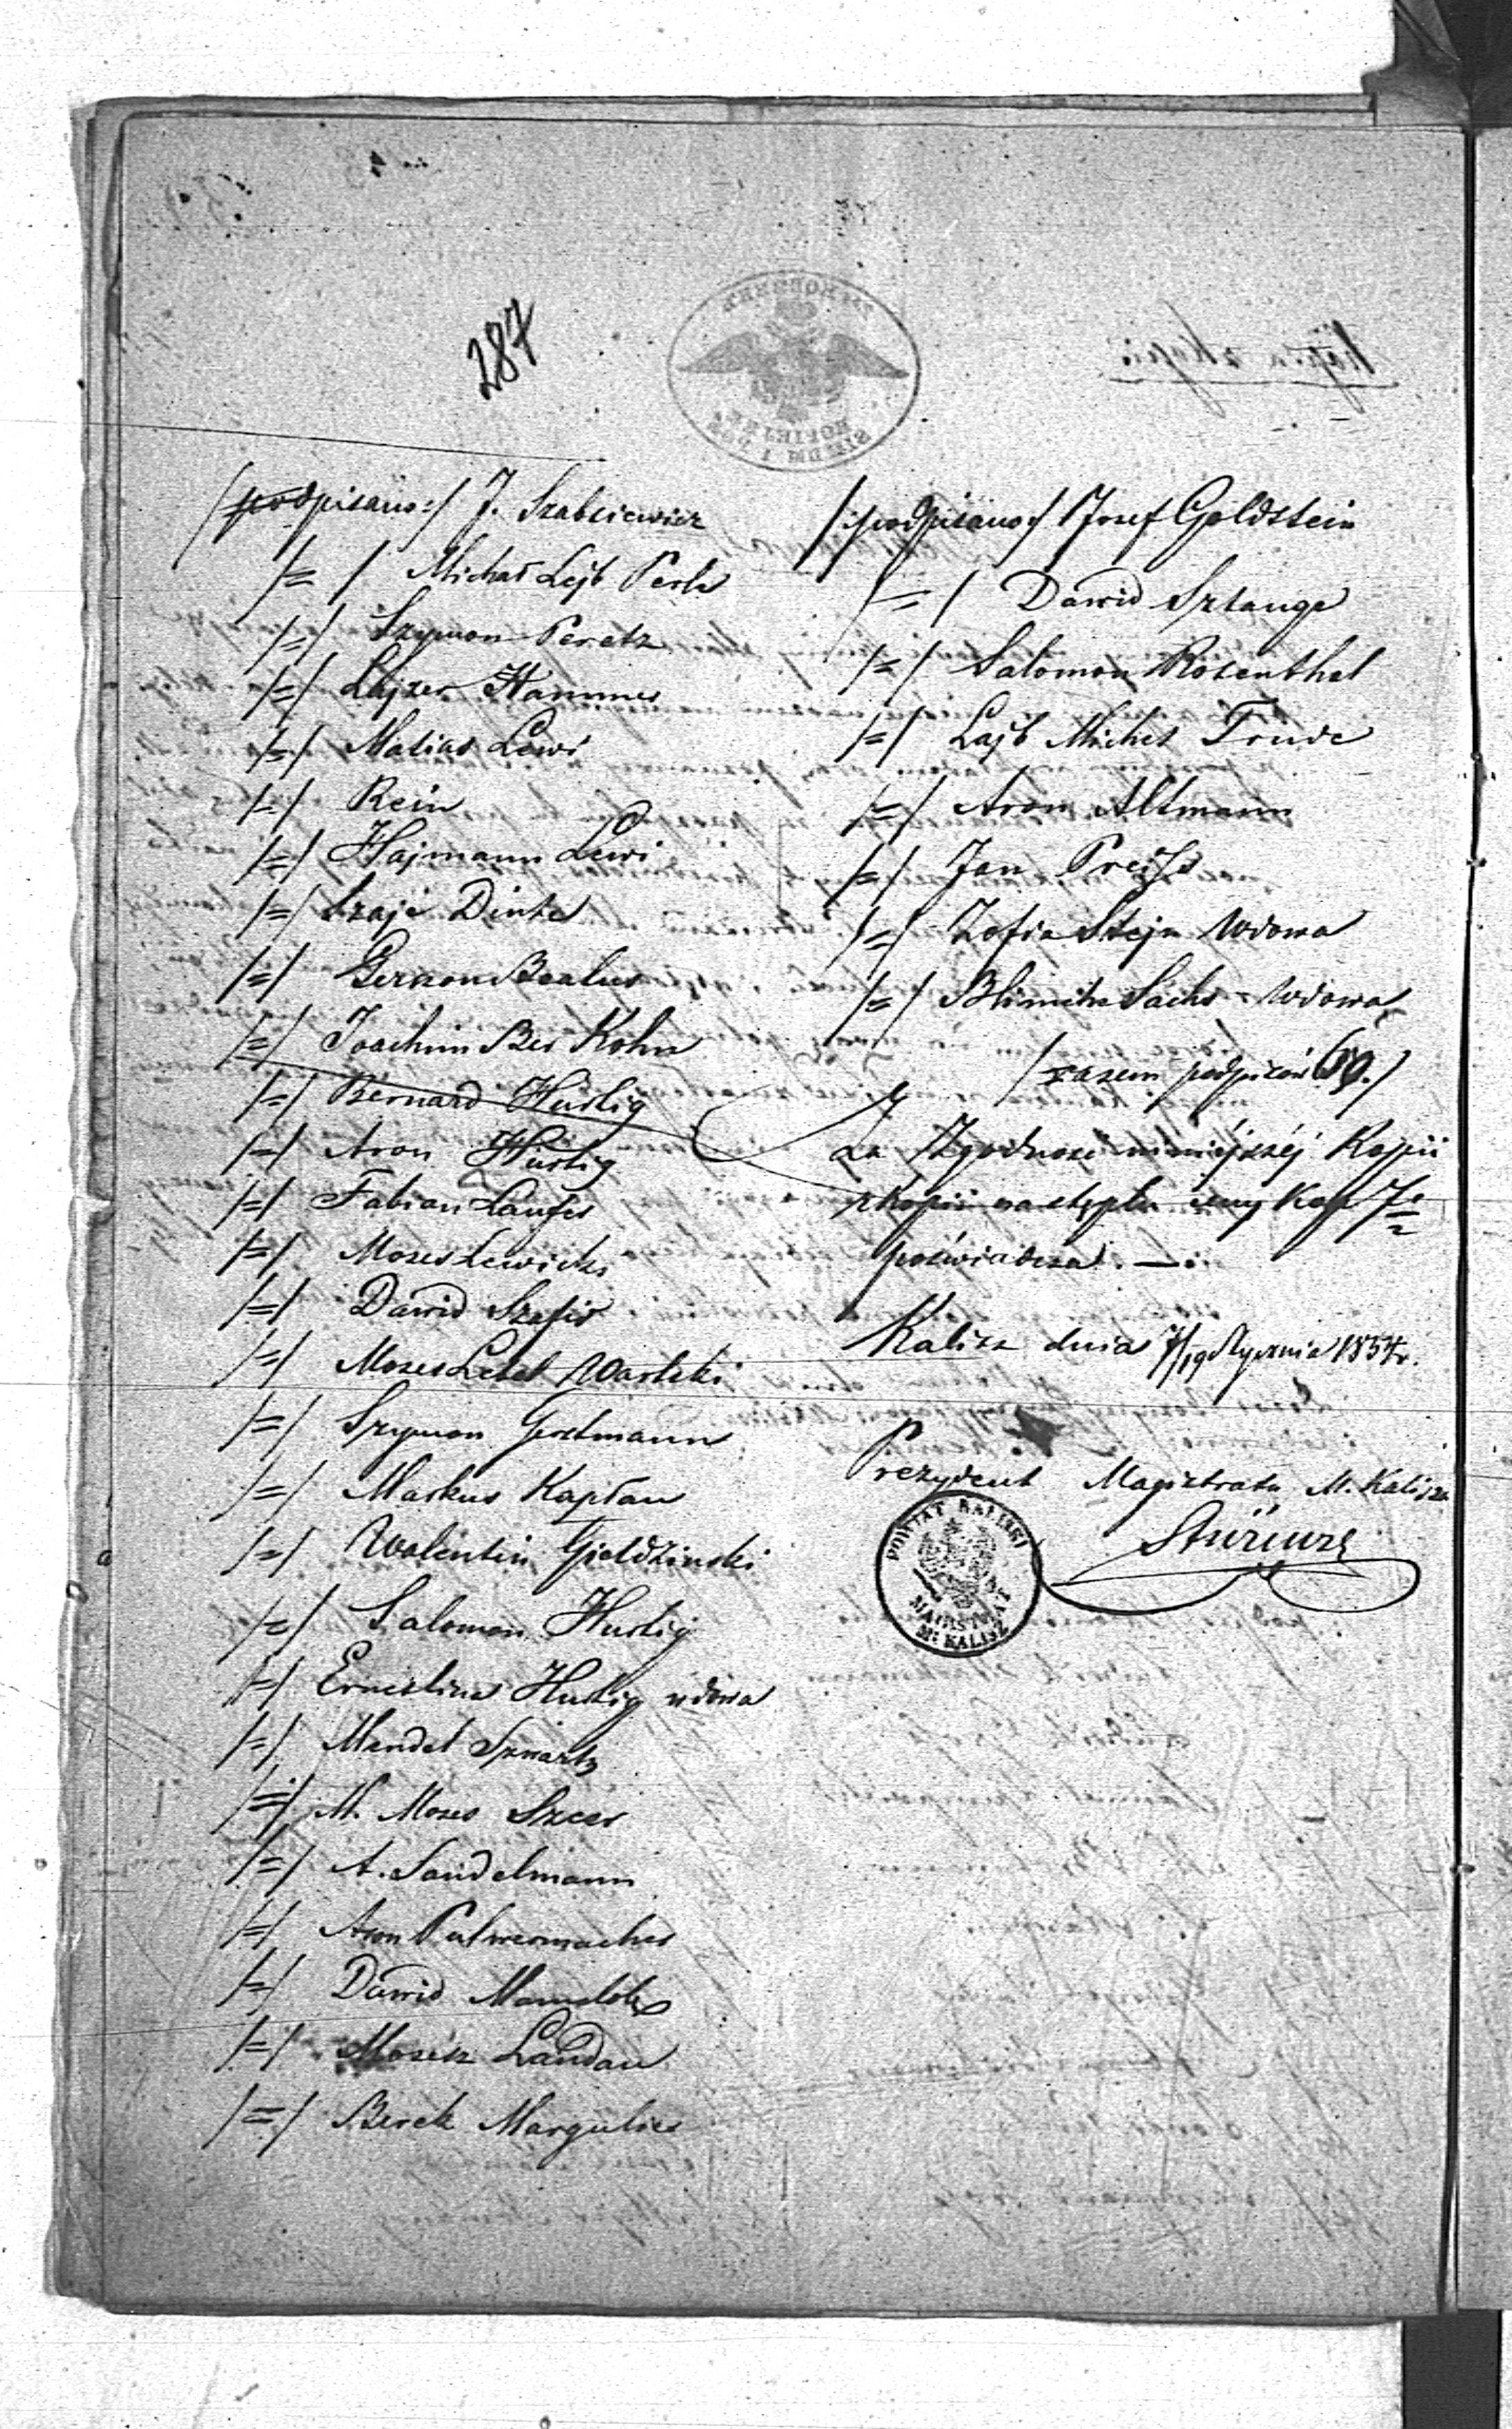 287
/podpisano:/ J. Szabsiewicz
/=/ Michał Lejb Perle
/=/ Szymon Peretz
/=/ Lajzer Hammer
/=/ Matias Lewi
/=/ Rein
/=/ Hajmann Lewi
/=/ Szaje Dinte
/=/ Gerzon Bealus
/=/ Joachim Ber Kohn
/=/ Bernard Hurtig
/=/ Aron Hurtig
/=/ Fabian Laufer
/=/ Moses Lewicki
/=/ Dawid Szefir
/=/ Moses Lebel Warlski
/=/ Szymon Gerstmann
/=/ Markus Kapłan
/=/ Walentin Giełdziński
/=/ Salomon Hurtig
/=/ Ernestina Hurtig wdowa
/=/ Mendel Szwartz
/=/ M. Moses Szeer
/=/ A. Sandelmann
/=/ Aron Pulwermacher
/=/ Dawid Mamelok
/=/ Mosiek Landau
/=/ Berek Margulies
/:podpisano:/ Josef Goldstein
/=/ Dawid Sztange
/=/ Salomon Rosenthal
/=/ Lajb Michel Trude
/=/ Aron Altmann
/=/ Jan Preiss
/=/ Zofia Stejn Wdowa
/=/ Blimche Sachs – Wdowa
/razem podpisów 69./
Za Zgodność niniejszéj Kopii
z Kopii na stęplu ceny Kop 7½
poświadcza. —
Kalisz dnia 7/19 Stycznia 1854 r.
Prezydent Magistratu M. Kalisza
POWIAT KALISKI
MAGISTRAT
M. KALISZ